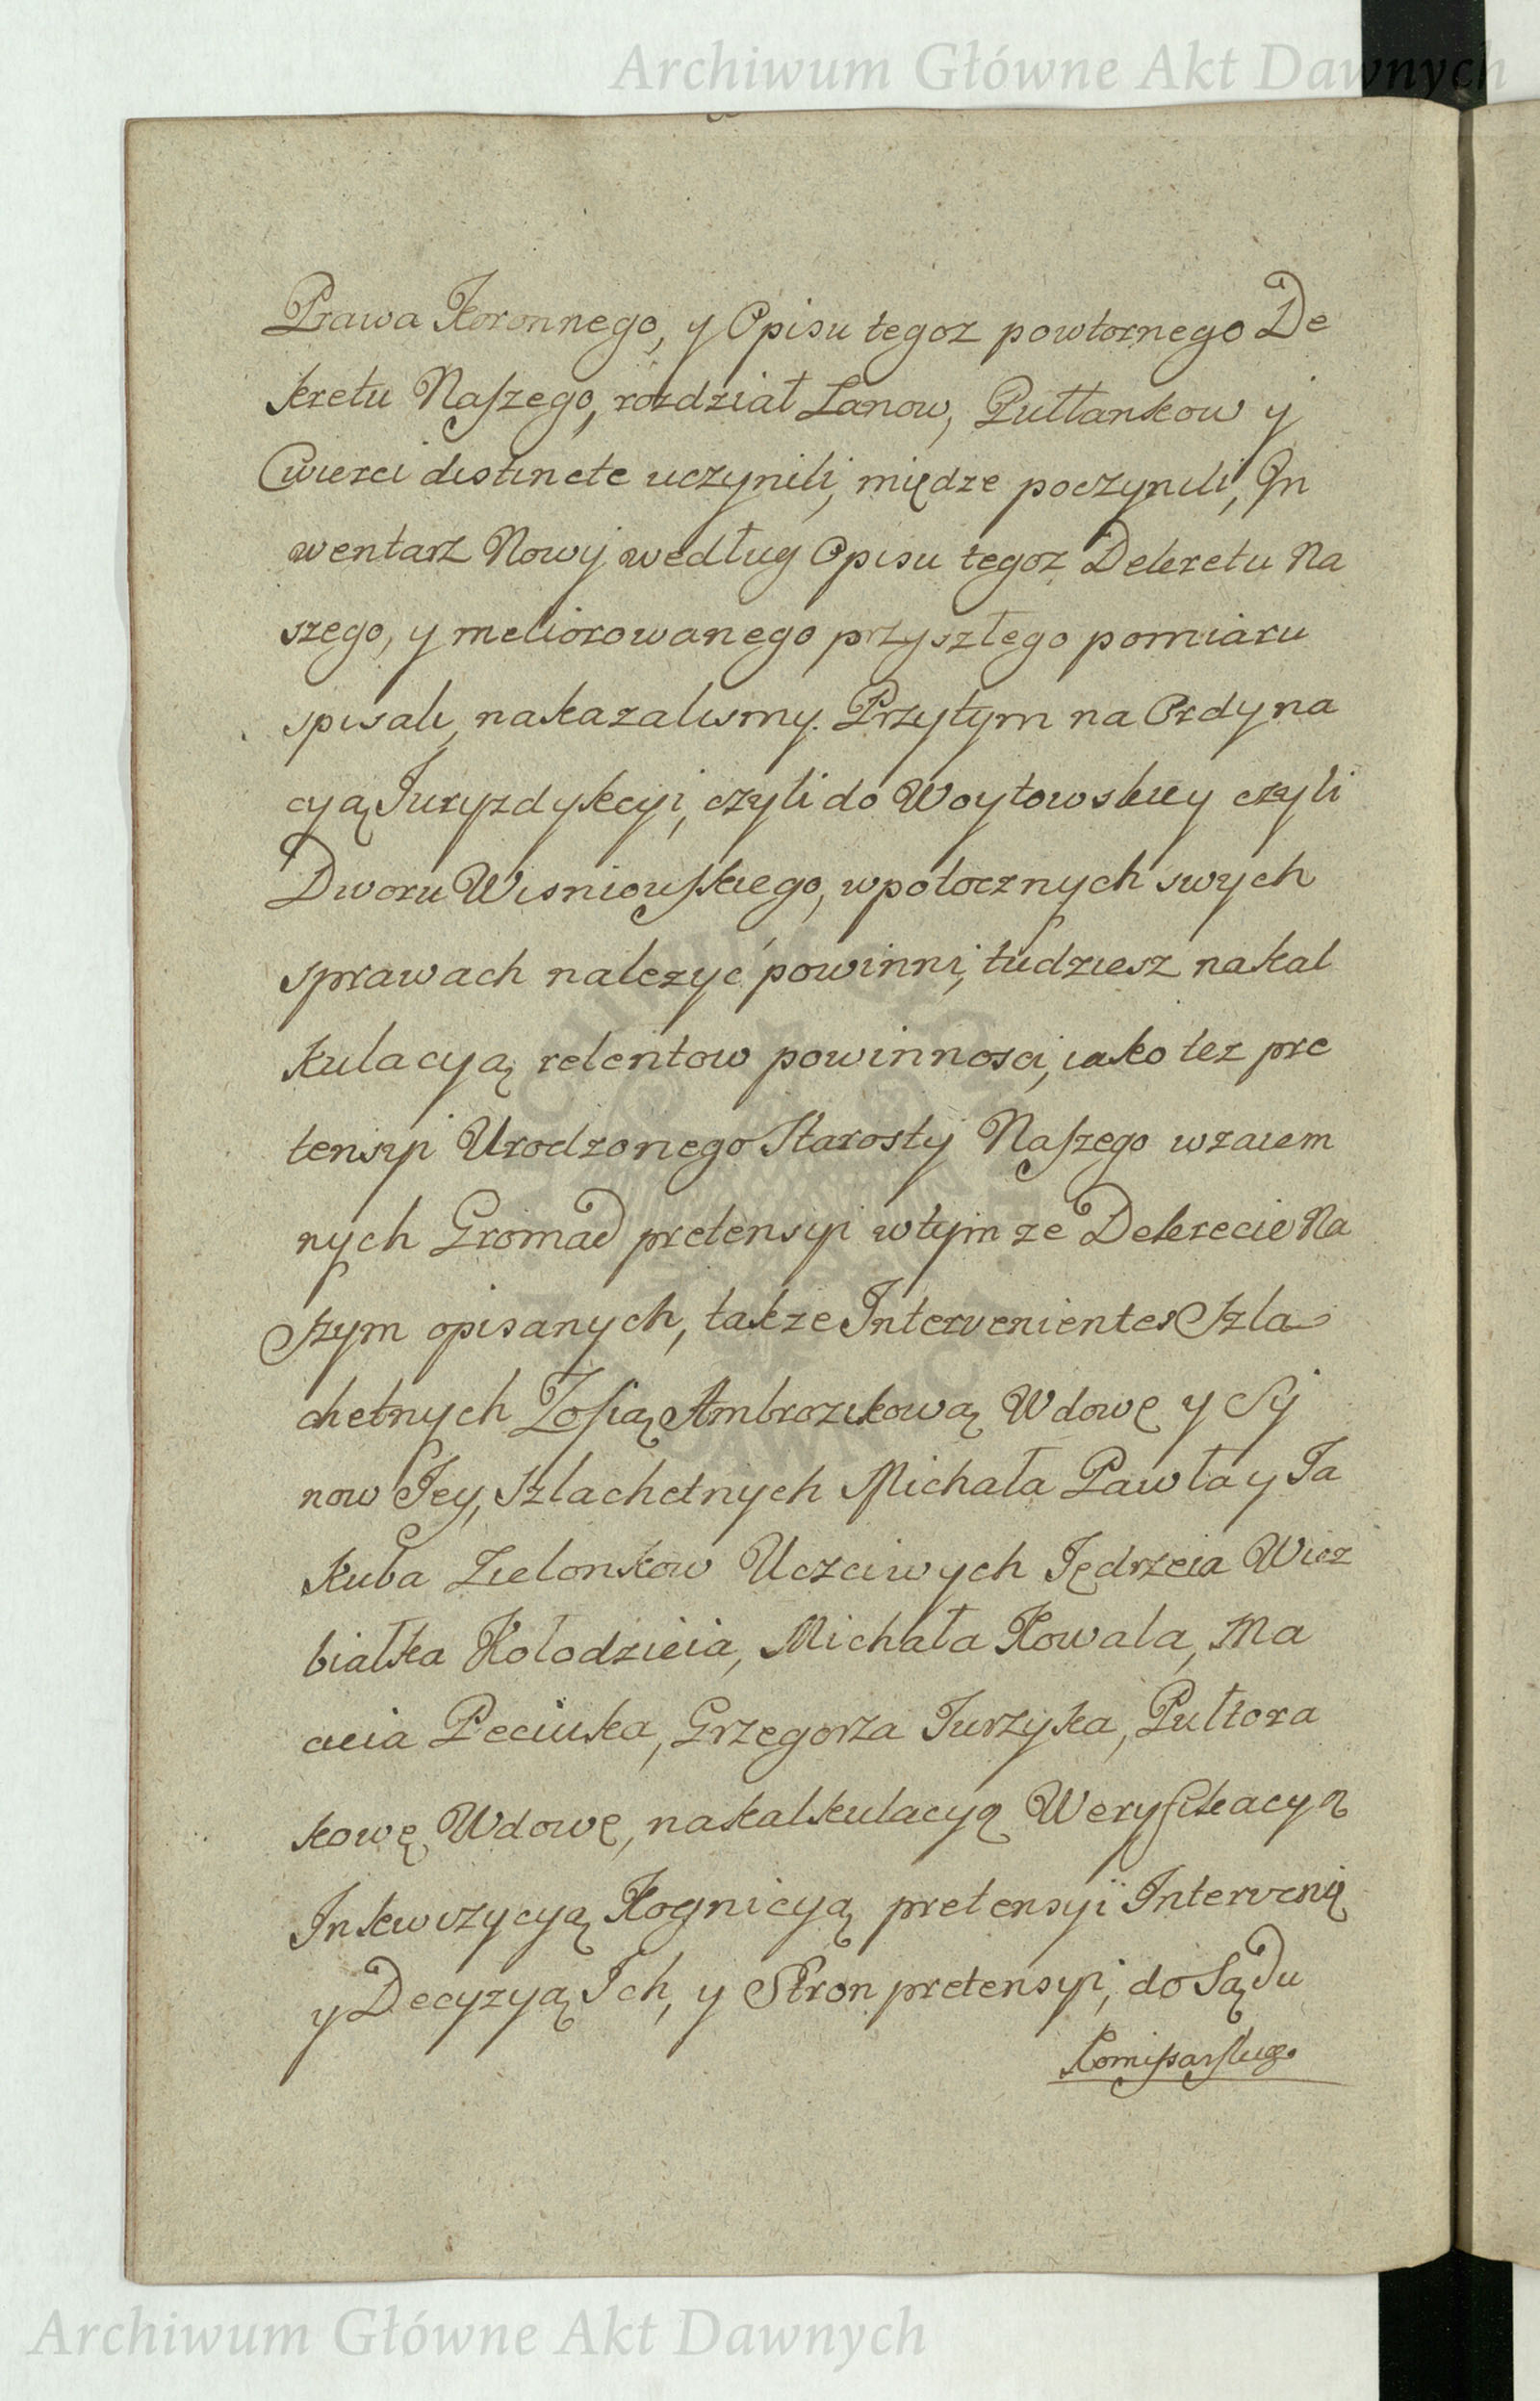 Archiwum Główne Akt Dawnych
Prawa Koronnego, y Opisu tegoz powtornego De
kretu Naszego, rozdział Lanow, Pułłankow y
Cwierci distincte uczynili, międze poczynili, In
wentarz Nowy według Opisu tegoz Dekretu Na
szego, y meliorowanego przyszłego pomiaru
spisali, nakazalismy. Przytym na Ordyna
cyą Juryzdykcyi, czyli do Woytowskiey czyli
Dworu Wisniowskiego, wpotocznych swych
sprawach nalezyć powinni, tudziesz nakal
kulacyą retentow powinnosci, iako tez pre
tensyi Urodzonego Starosty Naszego wzaiem
nych Gromad pretensyi wtymze Dekrecie Na
szym opisanych, takze Intervenientes Szla
chetnych Zofią Ambrozikową Wdowę y Sy
now Jey, Szlachetnych Michała Pawła y Ja
kuba Zielonkow Uczciwych Jędrzeia Wierz
białka Kołodzieia, Michała Kowala, Ma
cieia Peciuka, Grzegorza Jurzyka, Pułtora
kowę Wdowę, nakalkulacyą Weryfikacyą
Inkwizycyą Kognicyą pretensyi Interwenią
y Decyzyą Ich, y Stron pretensyi, do Sądu
Komissarskiego
Archiwum Główne Akt Dawnych